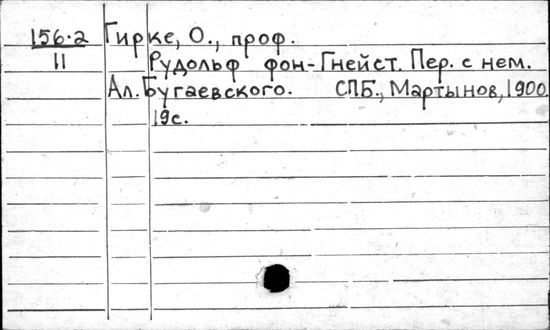 156.2 Гирке, О., проф.
11 Рудольф фон-Гнейст. Пер. с нем.
Ал. Бугаевского. СПБ., Мартынов, 1900
19с.